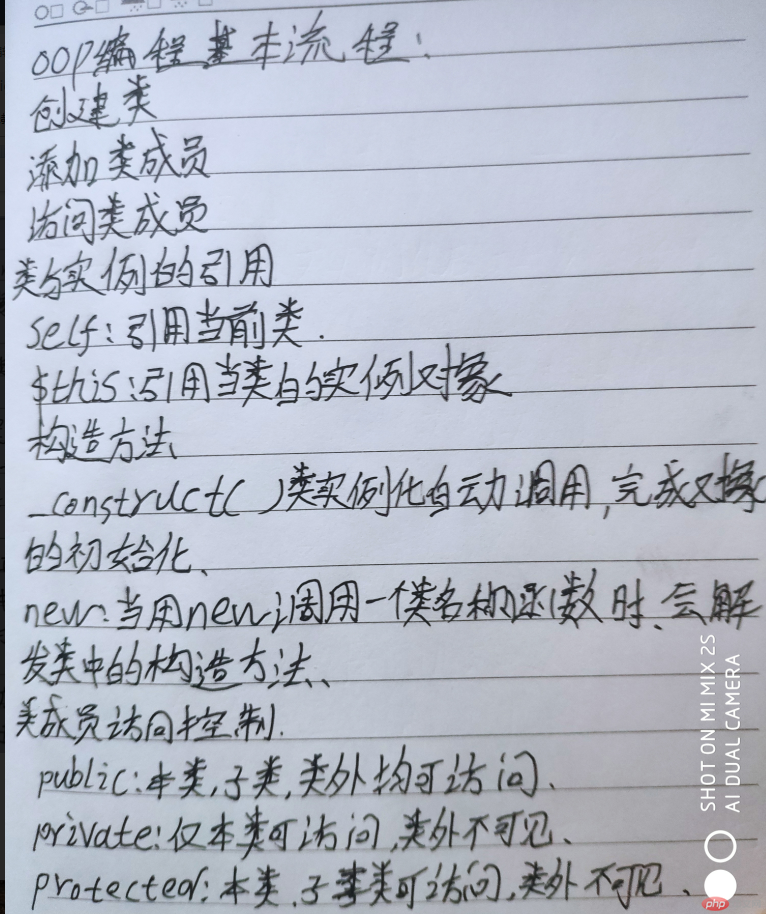 OOP编程基本流程:
创建类
添加类成员
访问类成员
类与实例的引用
self:引用当前类.
$this:引用当类的实例对象
构造方法、
_construct( )类实例化自动调用,完成对象
的初始化、
new:当用new调用一个类名称函数时、会解
发类中的构造方法、、
类成员访问控制.
public:本类,子类,类外均可访问、
private:仅本类可访问,类外不可见、
protected:本类,子类类可访问,类外不可见、
SHOT ON MI MIX 2S
AI DUAL CAMERA
php